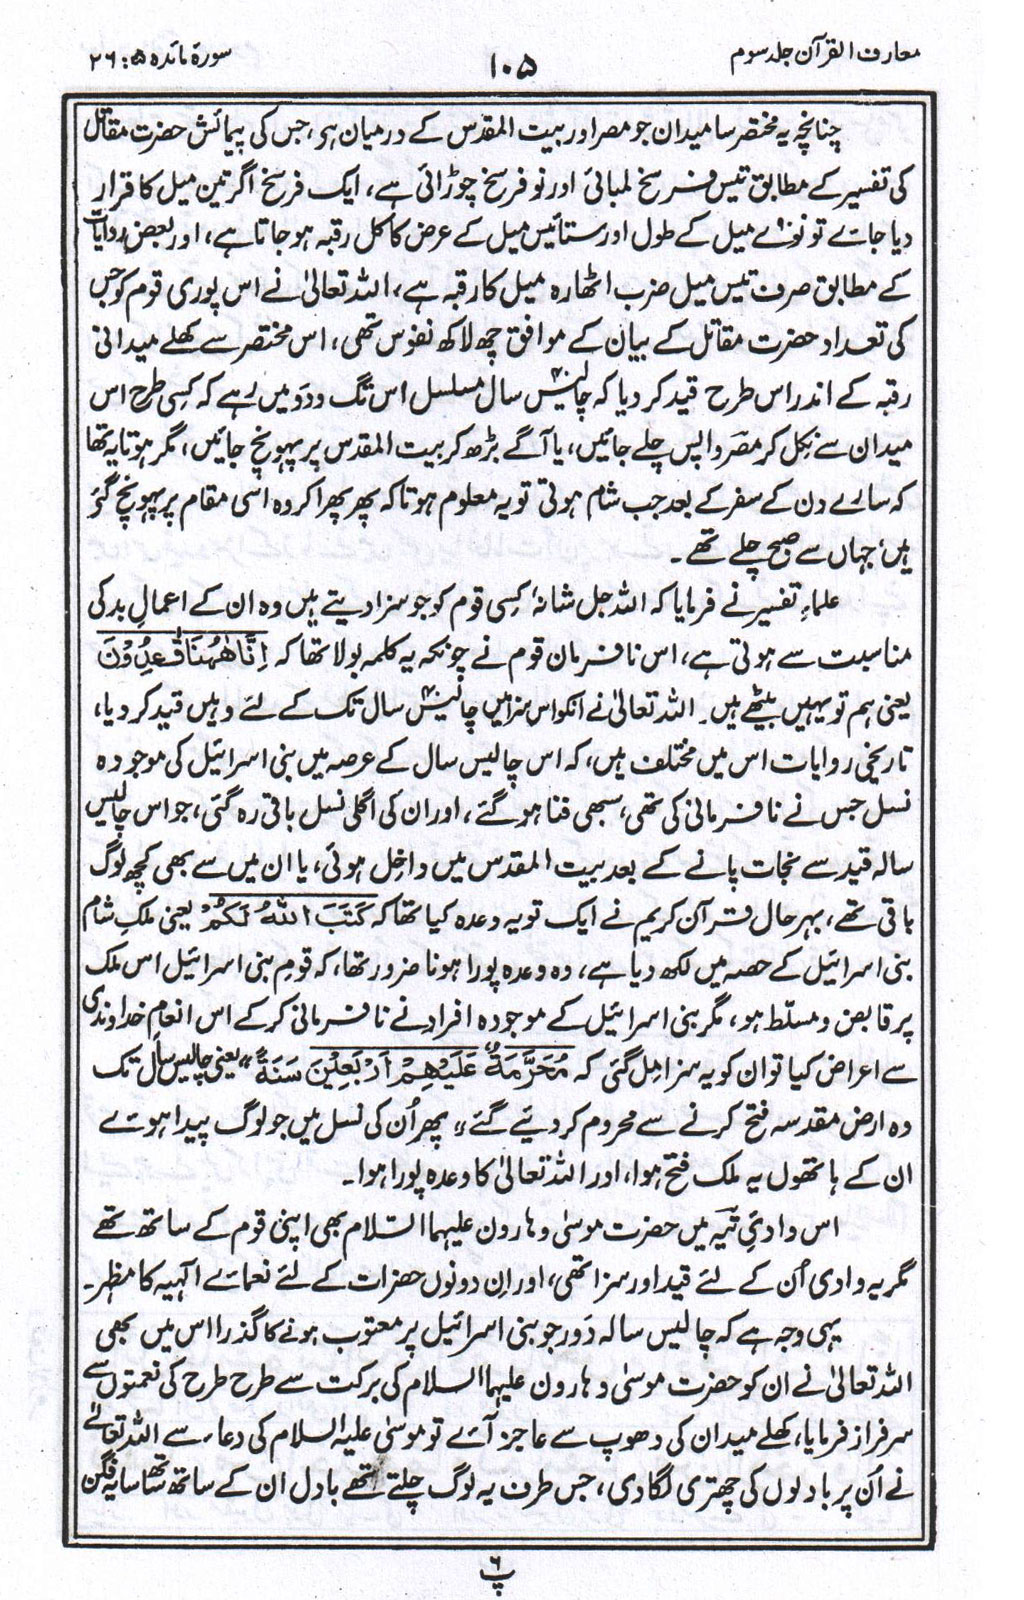 معارف القرآن جلد سوم
۱۰۵
سورۃ مائدہ ۵: ۲۶
چنانچہ یہ مختصر سا میدان جو مصر اور بیت المقدس کے درمیان ہی، جس کی پیمائش حضرت مقاتل
کی تفسیر کے مطابق تیس فرسخ لمبائی اور نو فرسخ چوڑائی ہے، ایک فرسخ اگر تین میل کا قرار
دیا جائے تو نوّے میل کے طول اور ستائیس میل کے عرض کا کل رقبہ ہو جاتا ہے، اور بعض روایات
کے مطابق صرف تیس میل ضرب اٹھارہ میل کا رقبہ ہے، اللہ تعالیٰ نے اس پوری قوم کو جس
کی تعداد حضرت مقاتل کے بیان کے موافق چھ لاکھ نفوس تھی، اس مختصر سے کھلے میدانی
رقبہ کے اندر اس طرح قید کر دیا کہ چالیس۴۰ سال مسلسل اس تگ و دَو میں رہے کہ کسی طرح اس
میدان سے نکل کر مصر واپس چلے جائیں، یا آگے بڑھ کر بیت المقدس پر پہونچ جائیں، مگر ہوتا یہ تھا
کہ سارے دن کے سفر کے بعد جب شام ہوتی تو یہ معلوم ہوتا کہ پھر پھرا کر وہ اسی مقام پر پہونچ گئے
ہیں جہاں سے صبح چلے تھے۔
علماءِ تفسیر نے فرمایا کہ اللہ جل شانہٗ کسی قوم کو جو سزا دیتے ہیں وہ ان کے اعمالِ بد کی
مناسبت سے ہوتی ہے، اس نافرمان قوم نے چونکہ یہ کلمہ بولا تھا کہ اِنَّا هٰهُنَا قٰعِدُوْنَ
یعنی ہم تو یہیں بیٹھے ہیں۔ اللہ تعالیٰ نے انکو اس سزا میں چالیس۴۰ سال تک کے لئے وہیں قید کر دیا،
تاریخی روایات اس میں مختلف ہیں، کہ اس چالیس سال کے عرصہ میں بنی اسرائیل کی موجودہ
نسل جس نے نافرمانی کی تھی، سبھی فنا ہو گئے، اور ان کی اگلی نسل باقی رہ گئی، جو اس چالیس
سالہ قید سے نجات پانے کے بعد بیت المقدس میں داخل ہوئی، یا ان میں سے بھی کچھ لوگ
باقی تھے، بہر حال قرآن کریم نے ایک تو یہ وعدہ کیا تھا کہ کَتَبَ اللّٰهُ لَکُمْ یعنی ملکِ شام
بنی اسرائیل کے حصہ میں لکھ دیا ہے، وہ وعدہ پورا ہونا ضرور تھا، کہ قوم بنی اسرائیل اس ملک
پر قابض و مسلّط ہو، مگر بنی اسرائیل کے موجودہ افراد نے نافرمانی کر کے اس انعام خداوندی
سے اعراض کیا تو ان کو یہ سزا مل گئی کہ مُحَرَّمَةٌ عَلَیْهِمْ اَرْبَعِیْنَ سَنَةً “ یعنی چالیس سال تک
وہ ارض مقدسہ فتح کرنے سے محروم کر دئیے گئے“ پھر اُن کی نسل میں جو لوگ پیدا ہوئے
ان کے ہاتھوں یہ ملک فتح ہوا، اور اللہ تعالیٰ کا وعدہ پورا ہوا۔
اس وادیِ تیہ میں حضرت موسیٰ و ہارون علیہما السّلام بھی اپنی قوم کے ساتھ تھے
مگر یہ وادی اُن کے لئے قید اور سزا تھی، اور اِن دونوں حضرات کے لئے نعمائے آلہیہ کا مظہر۔
یہی وجہ ہے کہ چالیس سالہ دَور جو بنی اسرائیل پر معتوب ہونے کا گذرا اس میں بھی
اللہ تعالیٰ نے ان کو حضرت موسیٰ و ہارون علیہما السلام کی برکت سے طرح طرح کی نعمتوں سے
سرفراز فرمایا، کھلے میدان کی دھوپ سے عاجز آئے تو موسیٰ علیہ السلام کی دعاء سے اللہ تعالےٰ
نے اُن پر بادلوں کی چھتری لگا دی، جس طرف یہ لوگ چلتے تھے بادل ان کے ساتھ ساتھ سایہ فگن
پ ۶